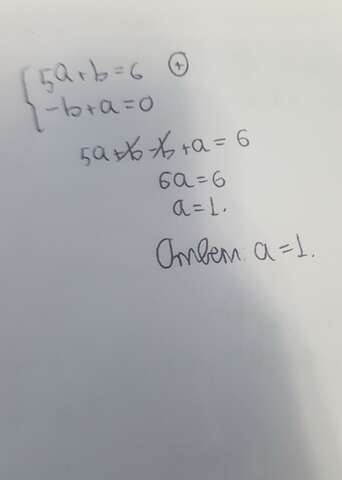 5a+b=6 (+)
-b+a=0
5a+b-b+a=6
6a=6
a=1.
Ответ: a=1.